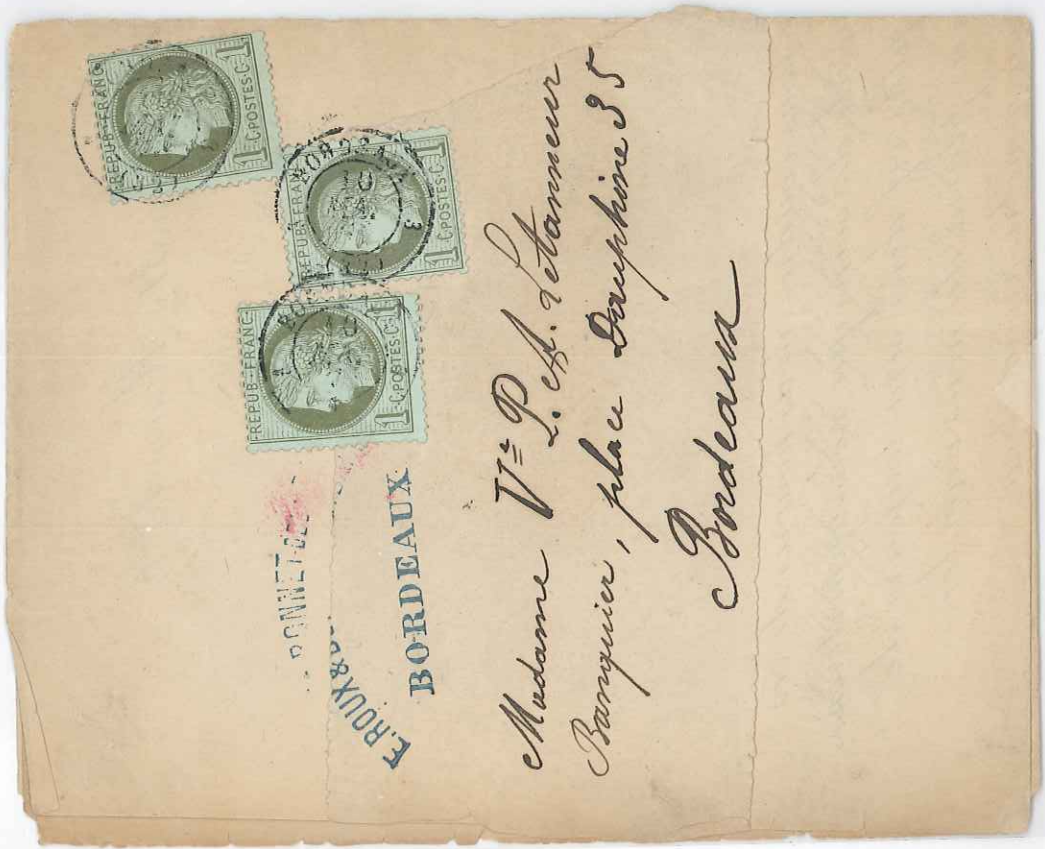 REPUB·FRANC·
1·C·POSTES·C·1
REPUB·FRANC·
1·C·POSTES·C·1
REPUB·FRANC·
1·C·POSTES·C·1
BORDEAUX
3
BONNET
E. ROUX &
BORDEAUX
Madame Vᵉ P. A. Letanneur
Banquier, place Dauphine 35
Bordeaux